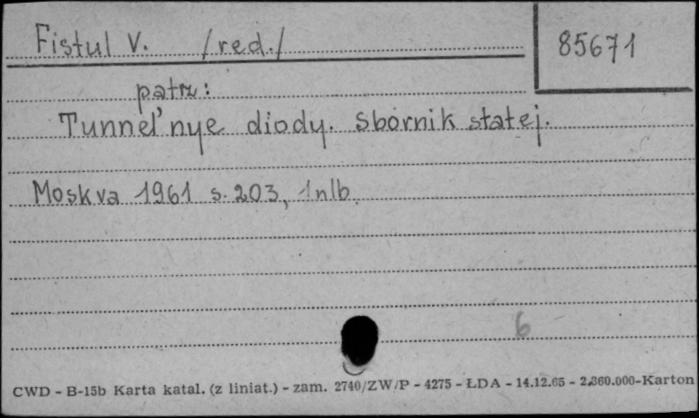 Fistul V. /red./
85671
patrz:
Tunnel'nye diody. Sbornik statej.
Moskva 1961 s. 203, 1nlb.
6
CWD - B-15b Karta katal. (z liniat.) - zam. 2740/ZW/P - 4275 - ŁDA - 14.12.65 - 2.360.000-Karton